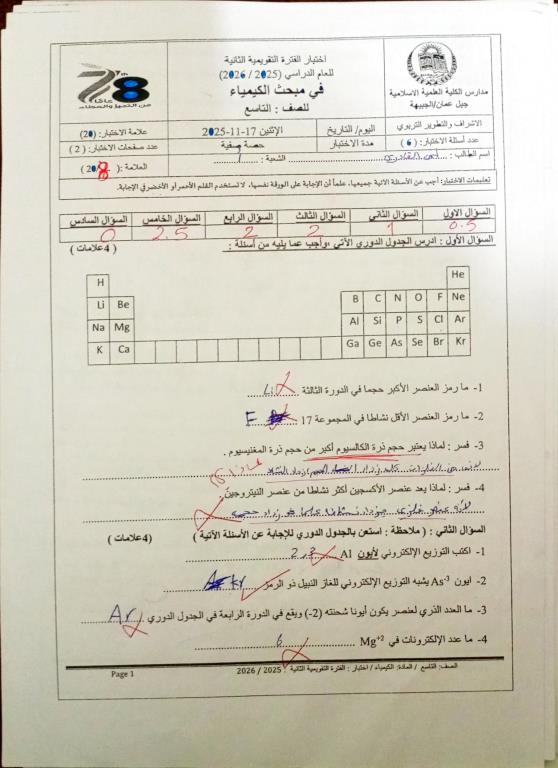 اختبار الفترة التقويمية الثانية
للعام الدراسي (2025 / 2026)
في مبحث الكيمياء
للصف : التاسع
78
عامًا
من التميز والعطاء
مدارس الكلية العلمية الاسلامية
جبل عمان/الجبيهة
الاشراف والتطوير التربوي
اليوم/ التاريخ
الإثنين 17-11-2025
علامة الاختبار: (20)
عدد أسئلة الاختبار: (6)
مدة الاختبار
حصة صفية
عدد صفحات الاختبار: (2)
اسم الطالب:
الشعبة :
العلامة :( 8 / 20)
تعليمات الاختبار: أجب عن الأسئلة الآتية جميعها، علماً أن الإجابة على الورقة نفسها، لا تستخدم القلم الأحمر أو الأخضر في الإجابة.
السؤال الاول السؤال الثاني السؤال الثالث السؤال الرابع السؤال الخامس السؤال السادس
0.5 1 2 2 2.5 0
السؤال الأول : ادرس الجدول الدوري الآتي ،وأجب عما يليه من أسئلة : (4علامات )
H He
Li Be B C N O F Ne
Na Mg Al Si P S Cl Ar
K Ca Ga Ge As Se Br Kr
1- ما رمز العنصر الأكبر حجما في الدورة الثالثة Li
2- ما رمز العنصر الأقل نشاطا في المجموعة 17 F
3- فسر : لماذا يعتبر حجم ذرة الكالسيوم أكبر من حجم ذرة المغنيسيوم .
4- فسر : لماذا يعد عنصر الأكسجين أكثر نشاطا من عنصر النيتروجين.
السؤال الثاني : ( ملاحظة : استعن بالجدول الدوري للإجابة عن الأسئلة الآتية ) (4علامات )
1- اكتب التوزيع الإلكتروني لأيون Al
2- ايون As-3 يشبه التوزيع الإلكتروني للغاز النبيل ذو الرمز Kr
3- ما العدد الذري لعنصر يكون أيونا شحنته (2-) ويقع في الدورة الرابعة في الجدول الدوري Ar
4- ما عدد الإلكترونات في Mg+2 6
الصف: التاسع / المادة: الكيمياء / اختبار : الفترة التقويمية الثانية 2025 / 2026
Page 1